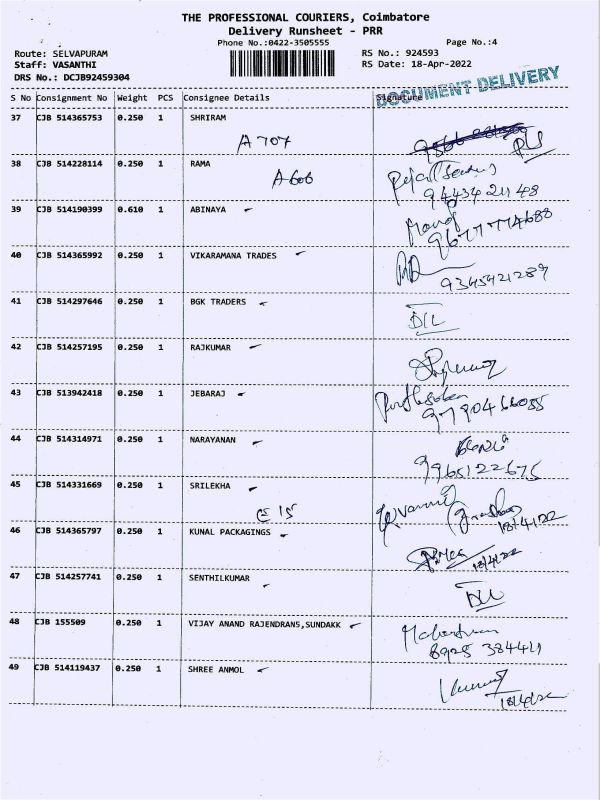 THE PROFESSIONAL COURIERS, Coimbatore
Delivery Runsheet - PRR
Phone No.:0422-3505555
Page No.:4
Route: SELVAPURAM
RS No.: 924593
Staff: VASANTHI
RS Date: 18-Apr-2022
DRS No.: DCJB92459304
DOCUMENT DELIVERY
S No Consignment No Weight PCS Consignee Details Signature
37 CJB 514365753 0.250 1 SHRIRAM
A 707
38 CJB 514228114 0.250 1 RAMA
A 606
9443421148
39 CJB 514190399 0.610 1 ABINAYA
Manoj
9677774688
40 CJB 514365992 0.250 1 VIKARAMANA TRADES
9345921289
41 CJB 514297646 0.250 1 BGK TRADERS
D/L
42 CJB 514257195 0.250 1 RAJKUMAR
43 CJB 513942418 0.250 1 JEBARAJ
44 CJB 514314971 0.250 1 NARAYANAN
9965122675
45 CJB 514331669 0.250 1 SRILEKHA
C 15
18/4/22
46 CJB 514365797 0.250 1 KUNAL PACKAGINGS
18/4/22
47 CJB 514257741 0.250 1 SENTHILKUMAR
D/L
48 CJB 155509 0.250 1 VIJAY ANAND RAJENDRANS,SUNDAKK
8925 384441
49 CJB 514119437 0.250 1 SHREE ANMOL
18/4/22